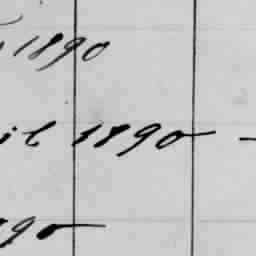 1890
il 1890 -
90